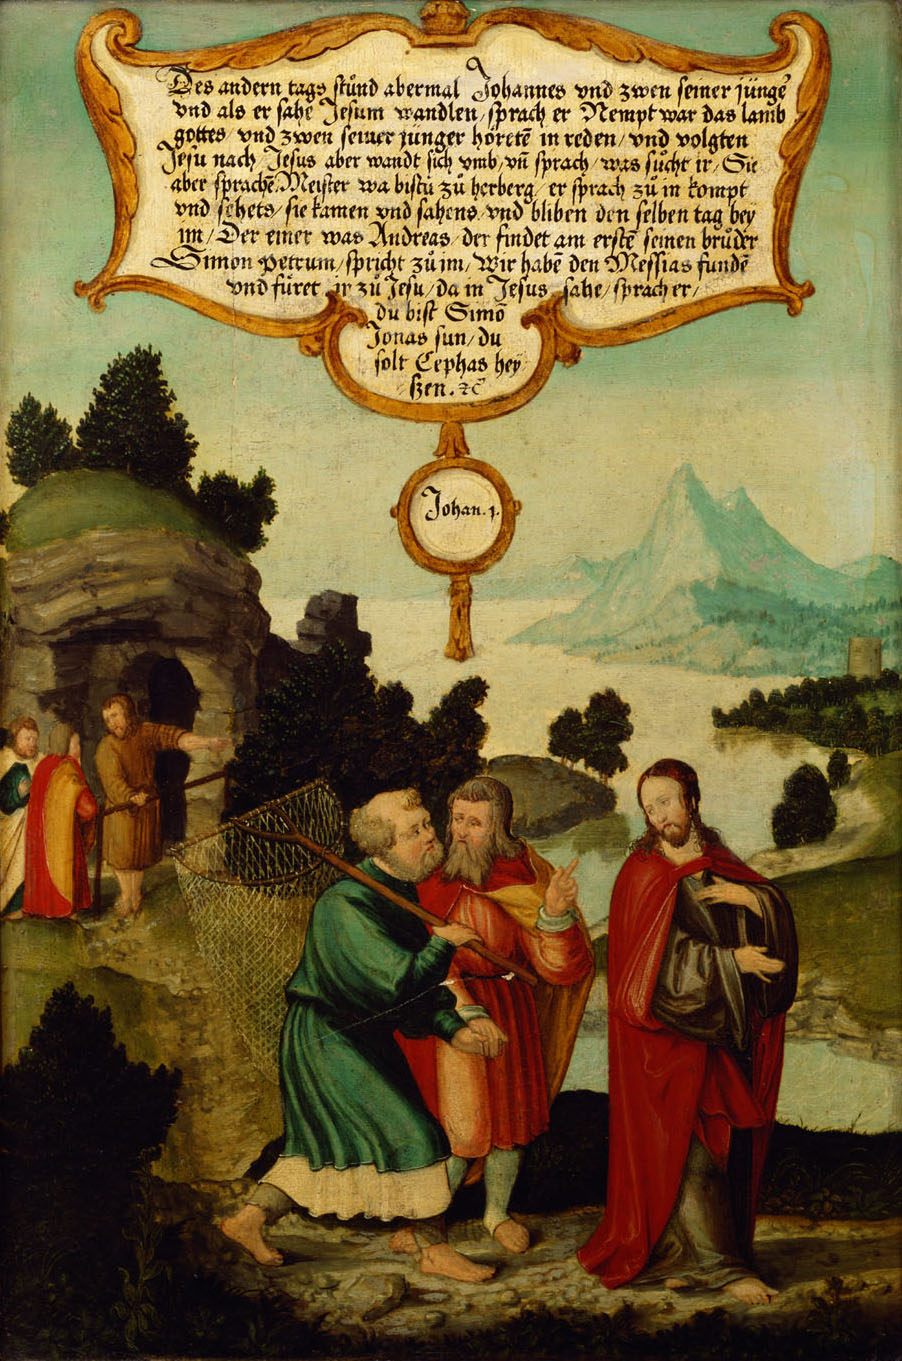 Des andern tags stůnd abermal Johannes vnd zwen seiner jüngē
vnd als er sahe Jesum wandlen/sprach er Nempt war das lamb
gottes/vnd zwen seiner jünger höretē in reden/vnd volgten
Jesu nach/Jesus aber wandt sich vmb/vñ sprach/was sůcht ir/Sie
aber sprachē.Meister wa bistu zů herberg/er sprach zů in kompt
vnd sehets/sie kamen vnd sahens/vnd bliben den selben tag bey
im/Der einer was Andreas/der findet am erstē seinen brůder
Simon Petrum/spricht zů im/Wir habē den Messias fundē
vnd fůret in zů Jesu/da in Jesus sahe/sprach er/
du bist Simō
Jonas sun/du
solt Cephas hey
szen.ꝛc̄
Johan.1.